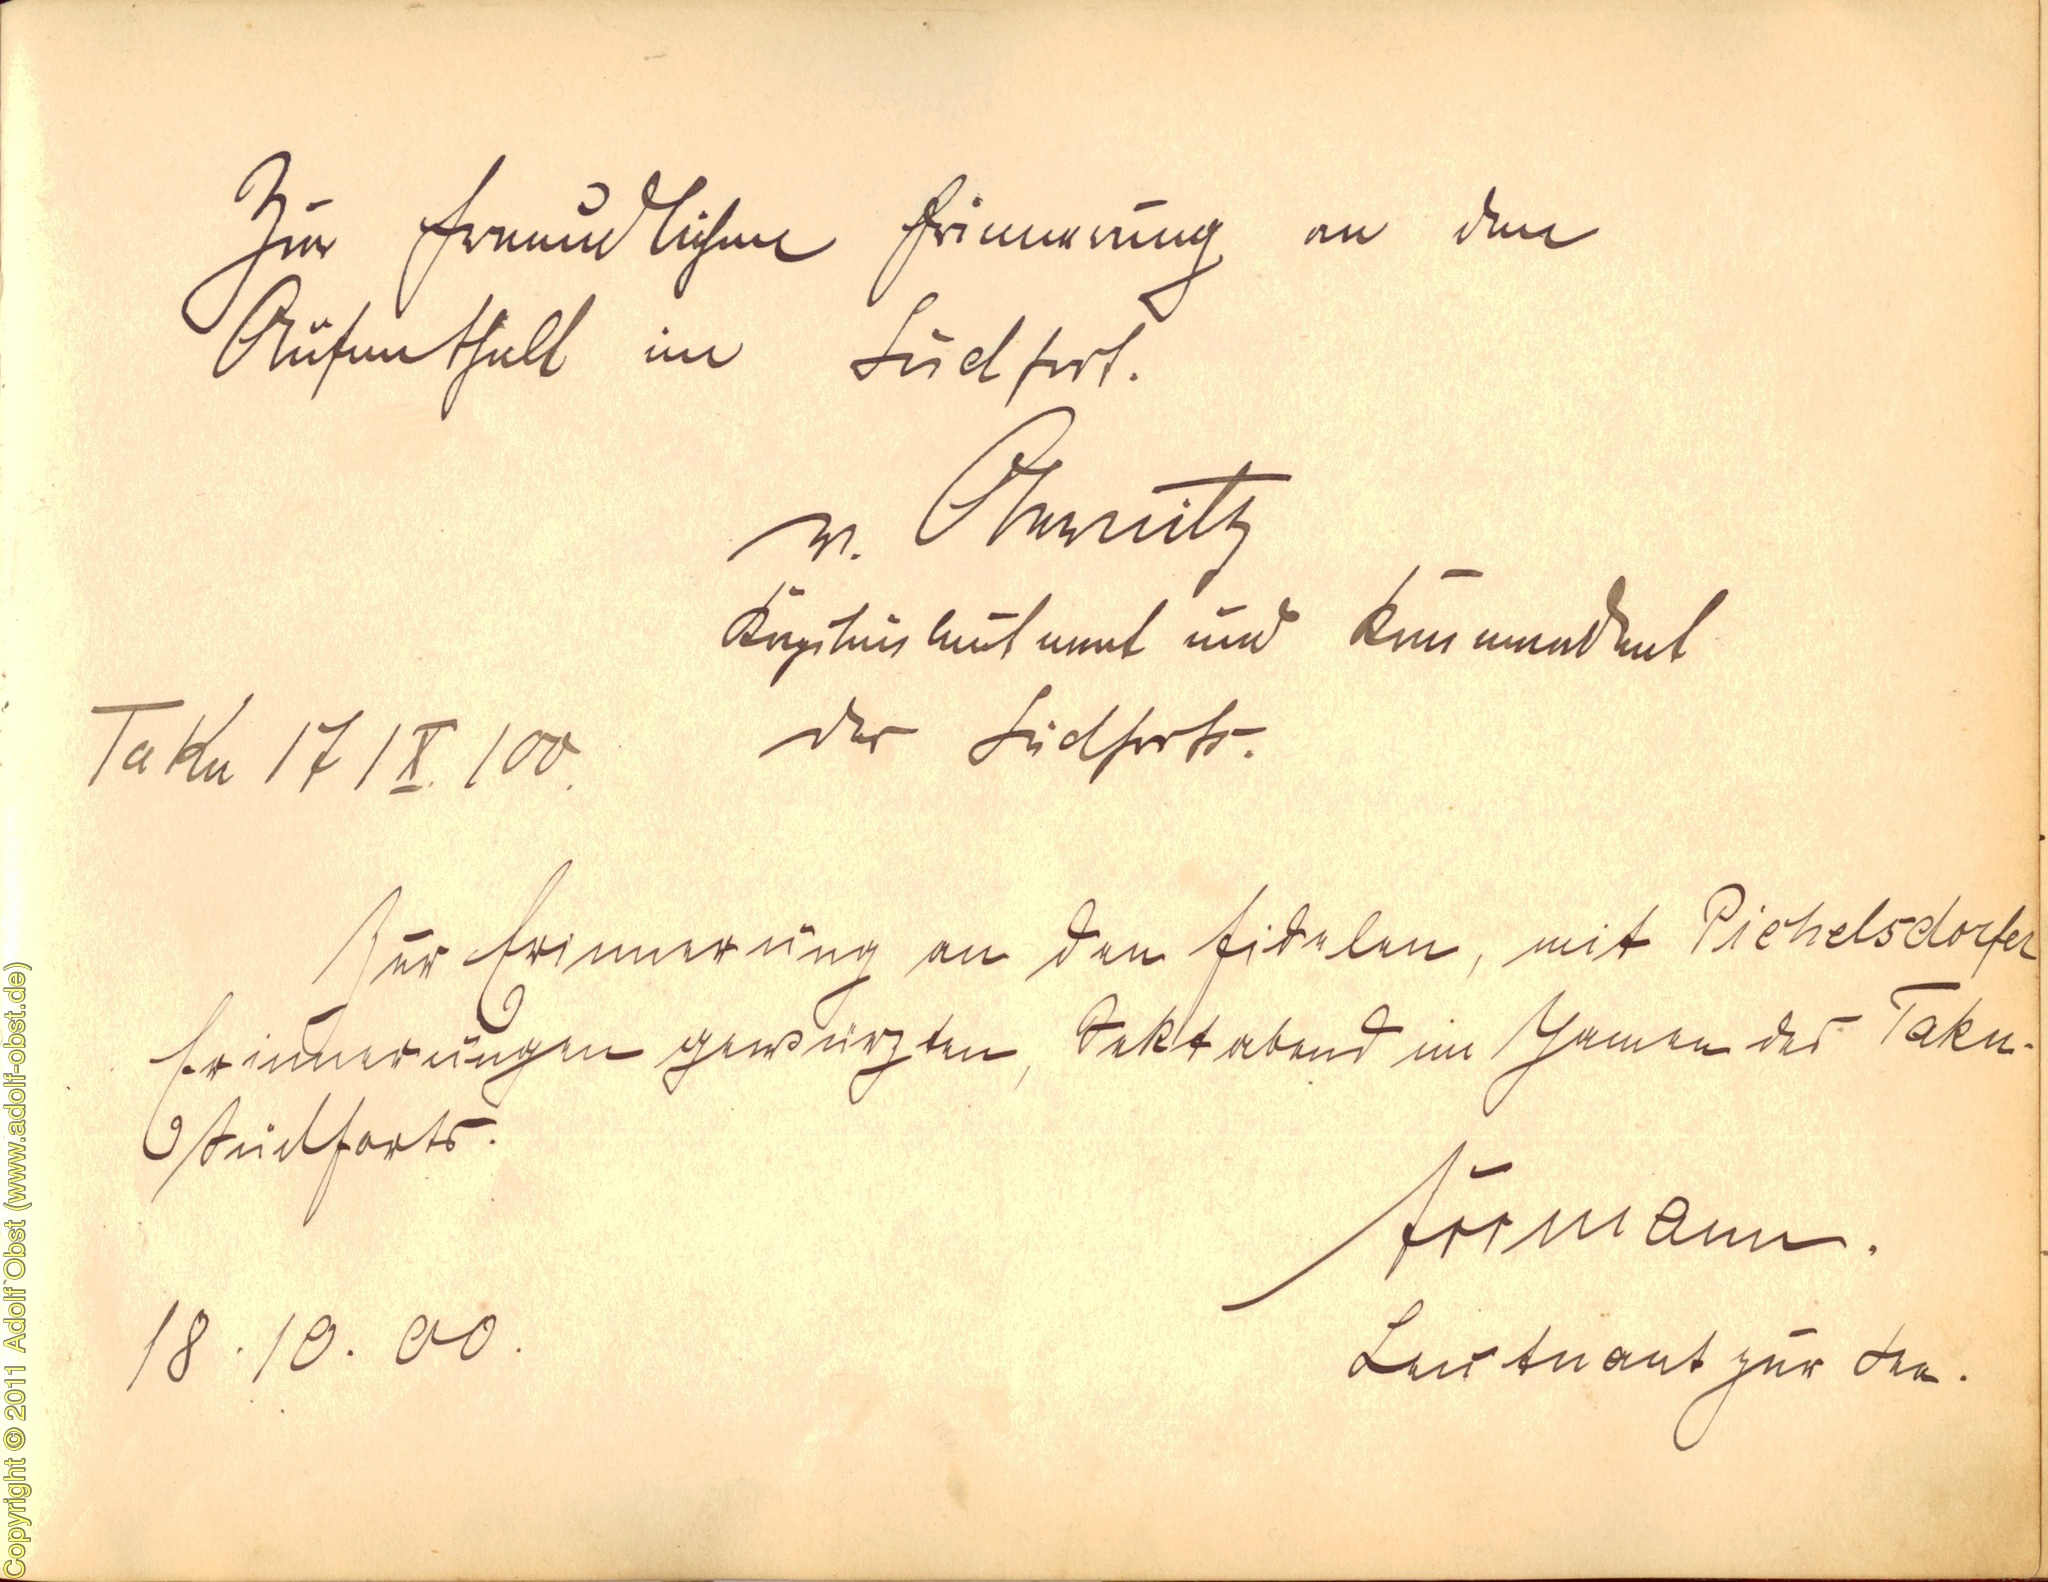 Zur freundlichen Erinnerung an den
Aufenthalt im Südfort.
v.
Kapitänleutnant und Kommandant
des Südforts.
Taku 17/X./00.
Zur Erinnerung an den fidelen, mit Pichelsdorfer
Erinnerungen gewürzten, Sektabend im Yamen des Taku-
Südforts.
Leutnant zur See.
18.10.00.
Copyright © 2011 Adolf Obst (www.adolf-obst.de)